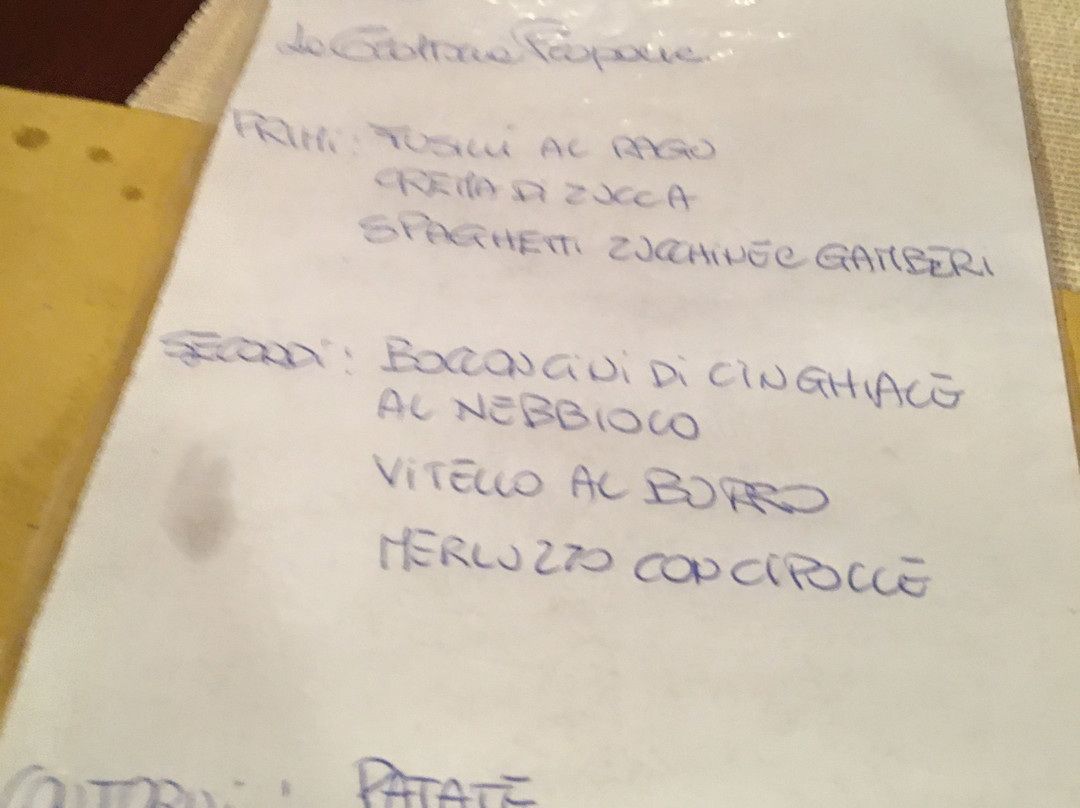 La Trattoria Propone
PRIMI: FUSILLI AL RAGU
CREMA DI ZUCCA
SPAGHETTI ZUCCHINE E GAMBERI
SECONDI: BOCCONCINI DI CINGHIALE
AL NEBBIOLO
VITELLO AL BURRO
MERLUZZO CON CIPOLLE
CONTORNI: PATATE